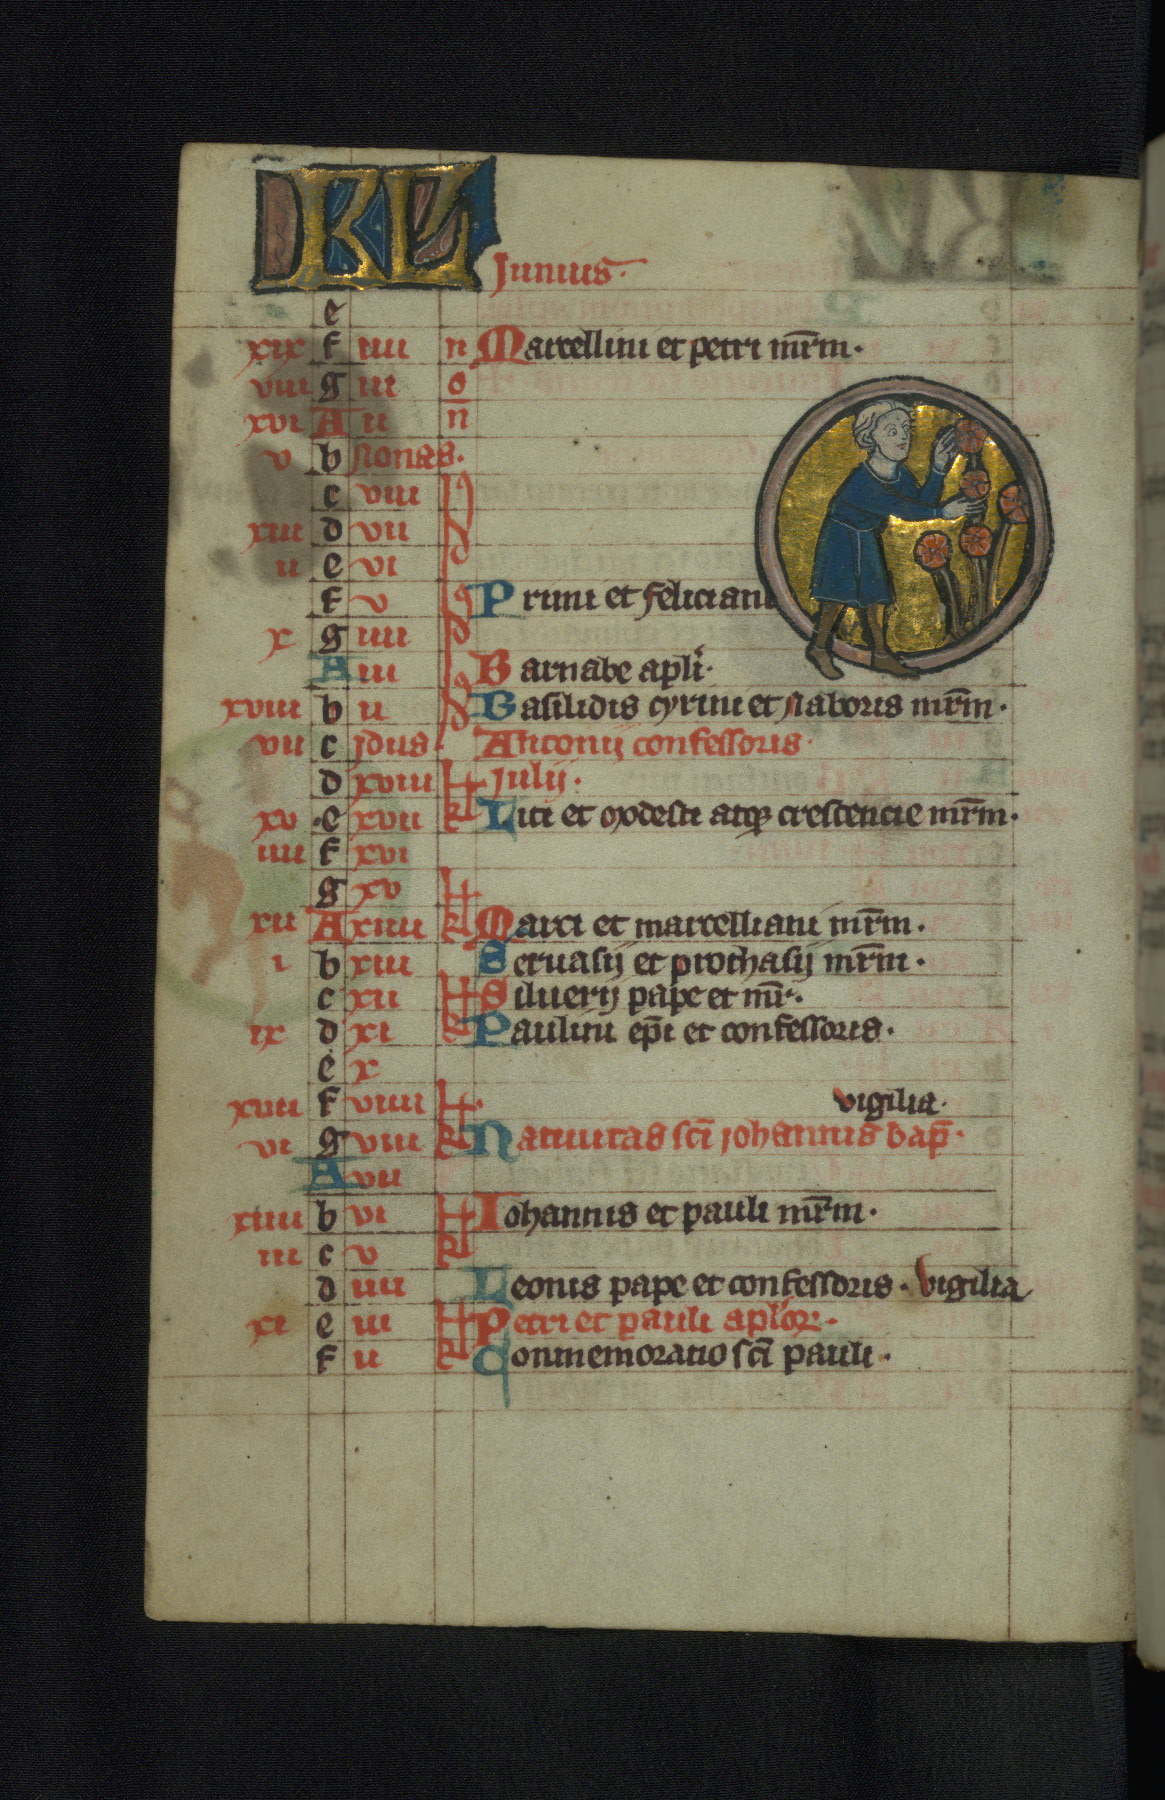 KL Junius.
e
xix f iiii n Marcellini et petri mr̄m.
viii g iii o
xvi A ii n̄
v b nonas.
c viii
xiii d vii
ii e vi
f v Primi et feliciani
x g iiii
A iii Barnabe apl̄i.
xviii b ii Basilidis cyrini et naboris mr̄m.
vii c jdus Antonij confessoris.
d xviii kl Julij.
xv e xvii kl Uiti et modesti atq; crescencie mr̄m.
iiii f xvi
g xv kl
xii A xiiii kl Marci et marcelliani mr̄m.
i b xiii Geruasij et prothasij mr̄m.
c xii kl Siluerij pape et mr̄.
ix d xi kl Paulini ep̄i et confessoris.
e x
xvii f viiii kl. vigilia.
vi g viii kl Natiuitas sc̄i johannis bap̄.
A vii
xiiii b vi kl Iohannis et pauli mr̄m.
iii c v kl
d iiii Leonis pape et confessoris. Vigilia
xi e iii kl Petri et pauli apl̄oꝝ.
f ii kl Conmemoratio sc̄i pauli.